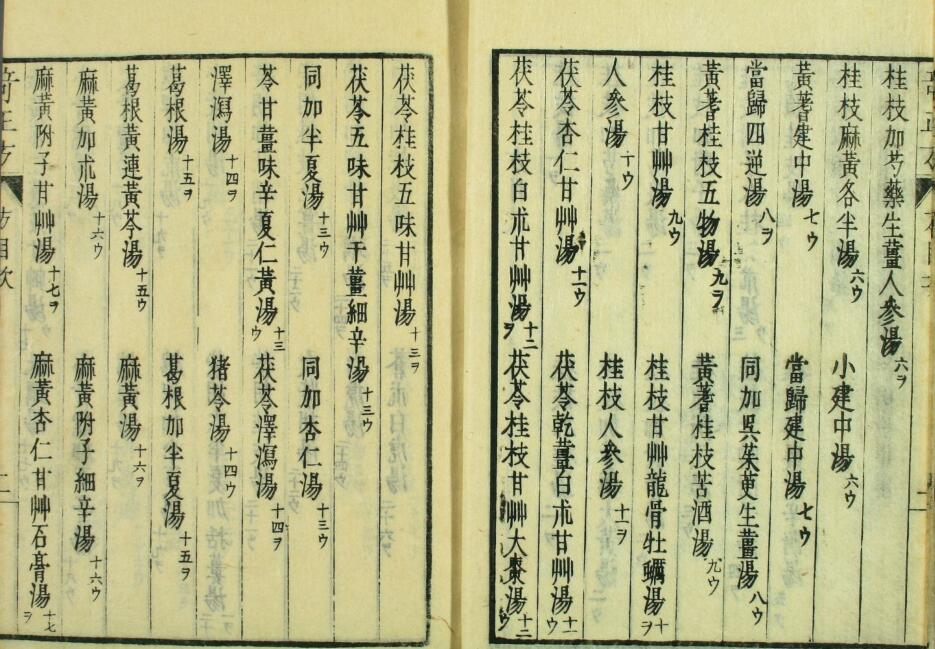 桂枝加芍藥生薑人參湯 六ヲ
桂枝麻黃各半湯 六ウ
小建中湯 六ウ
黃耆建中湯 七ウ
當歸建中湯 七ウ
當歸四逆湯 八ヲ
同加吳茱萸生薑湯 八ウ
黃耆桂枝五物湯 九ヲ
黃耆桂枝苦酒湯 九ウ
桂枝甘艸湯 九ウ
桂枝甘艸龍骨牡蠣湯 十ヲ
人參湯 十ウ
桂枝人參湯 十一ヲ
茯苓杏仁甘艸湯 十一ウ
茯苓乾薑白朮甘艸湯 十一ウ
茯苓桂枝白朮甘艸湯 十二ヲ
茯苓桂枝甘艸大棗湯 十二ウ
茯苓桂枝五味甘艸湯 十三ヲ
茯苓五味甘艸干薑細辛湯 十三ウ
同加半夏湯 十三ウ
同加杏仁湯 十三ウ
苓甘薑味辛夏仁黃湯 十三ウ
茯苓澤瀉湯 十四ヲ
澤瀉湯 十四ヲ
猪苓湯 十四ウ
葛根湯 十五ヲ
葛根加半夏湯 十五ヲ
葛根黃連黃芩湯 十五ウ
麻黃湯 十六ヲ
麻黃加朮湯 十六ウ
麻黃附子細辛湯 十六ウ
麻黃附子甘艸湯 十七ヲ
麻黃杏仁甘艸石膏湯 十七ヲ
方目次
二